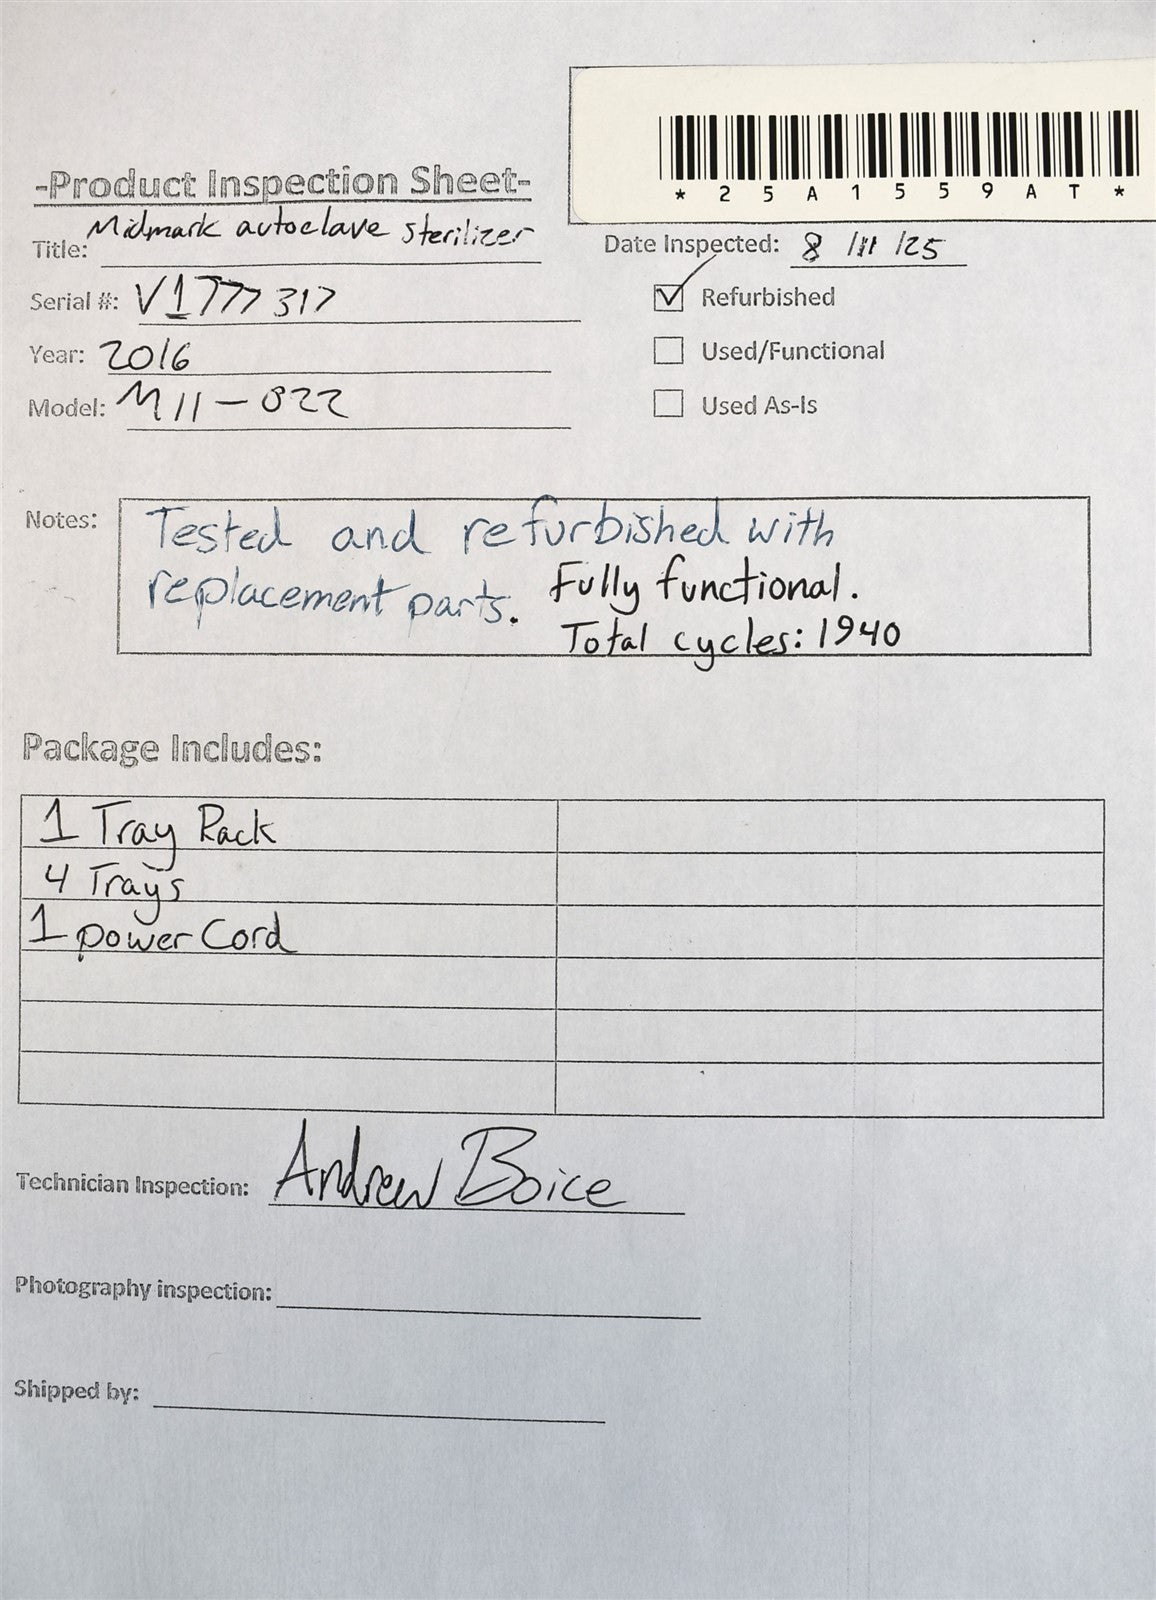 *25A1559AT*
-Product Inspection Sheet-
Title: Midmark autoclave sterilizer
Date Inspected: 8 /11 /25
Serial #: V1777317
Refurbished
Year: 2016
Used/Functional
Model: M11-022
Used As-Is
Notes: Tested and refurbished with
replacement parts. Fully functional.
Total cycles: 1940
Package Includes:
1 Tray Rack
4 Trays
1 power Cord
Technician Inspection: Andrew Boice
Photography inspection:
Shipped by: